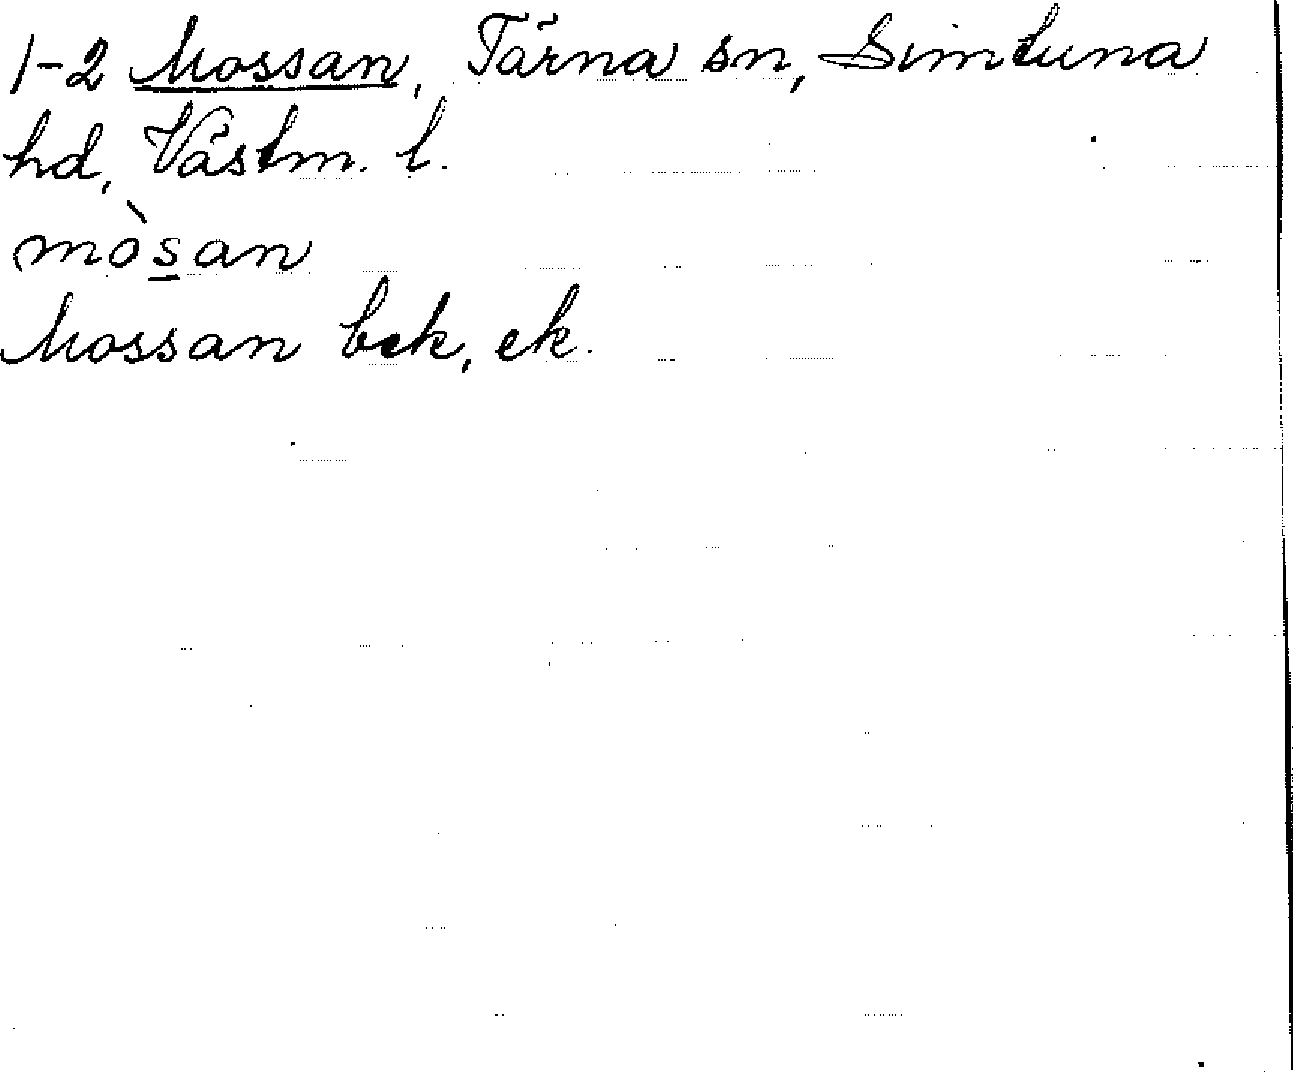 1-2 Mossan, Tärna sn, Simtuna
hd, Västm. l.
mòs̲an
Mossan bek, ek.